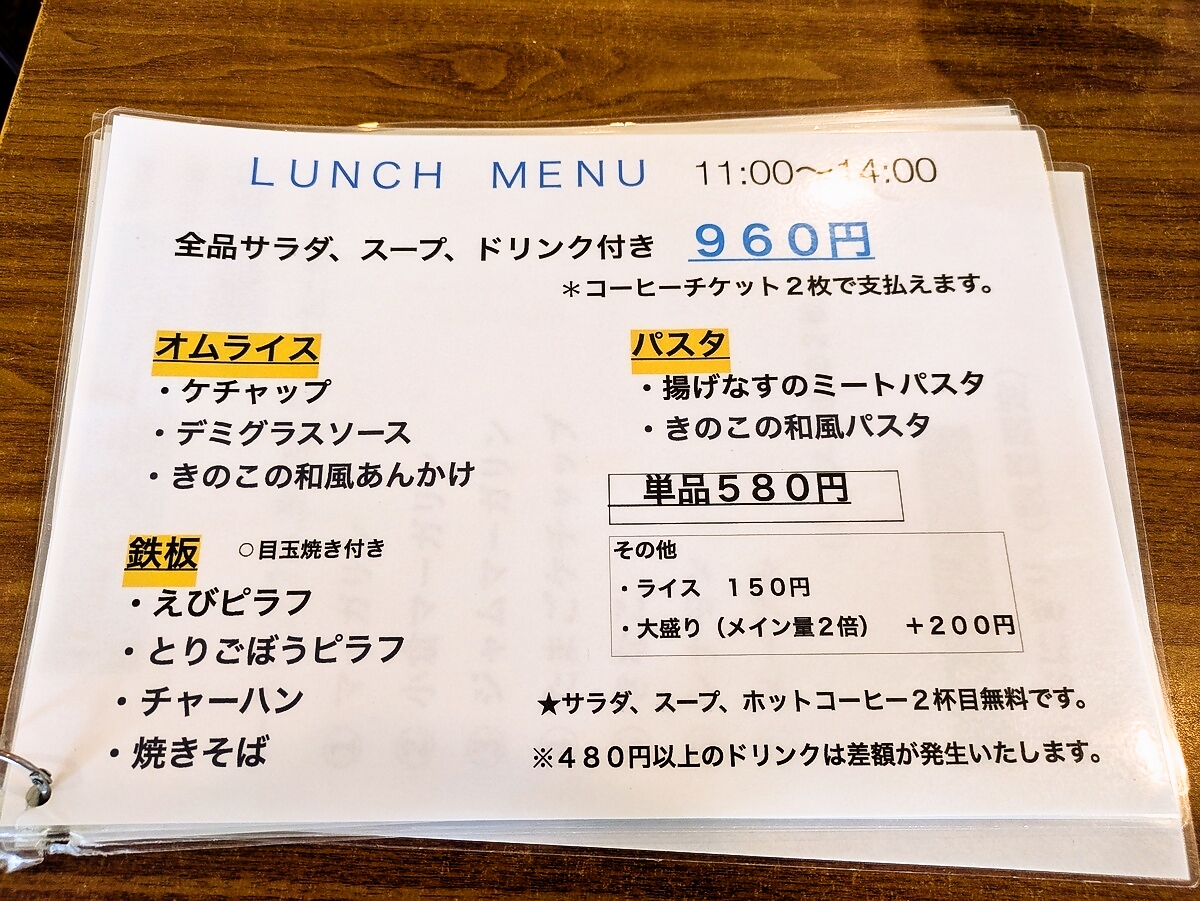 LUNCH MENU 11:00～14:00
全品サラダ、スープ、ドリンク付き ９６０円
＊コーヒーチケット２枚で支払えます。
オムライス
・ケチャップ
・デミグラスソース
・きのこの和風あんかけ
鉄板 ○目玉焼き付き
・えびピラフ
・とりごぼうピラフ
・チャーハン
・焼きそば
パスタ
・揚げなすのミートパスタ
・きのこの和風パスタ
単品５８０円
その他
・ライス １５０円
・大盛り（メイン量２倍） ＋２００円
★サラダ、スープ、ホットコーヒー２杯目無料です。
※４８０円以上のドリンクは差額が発生いたします。